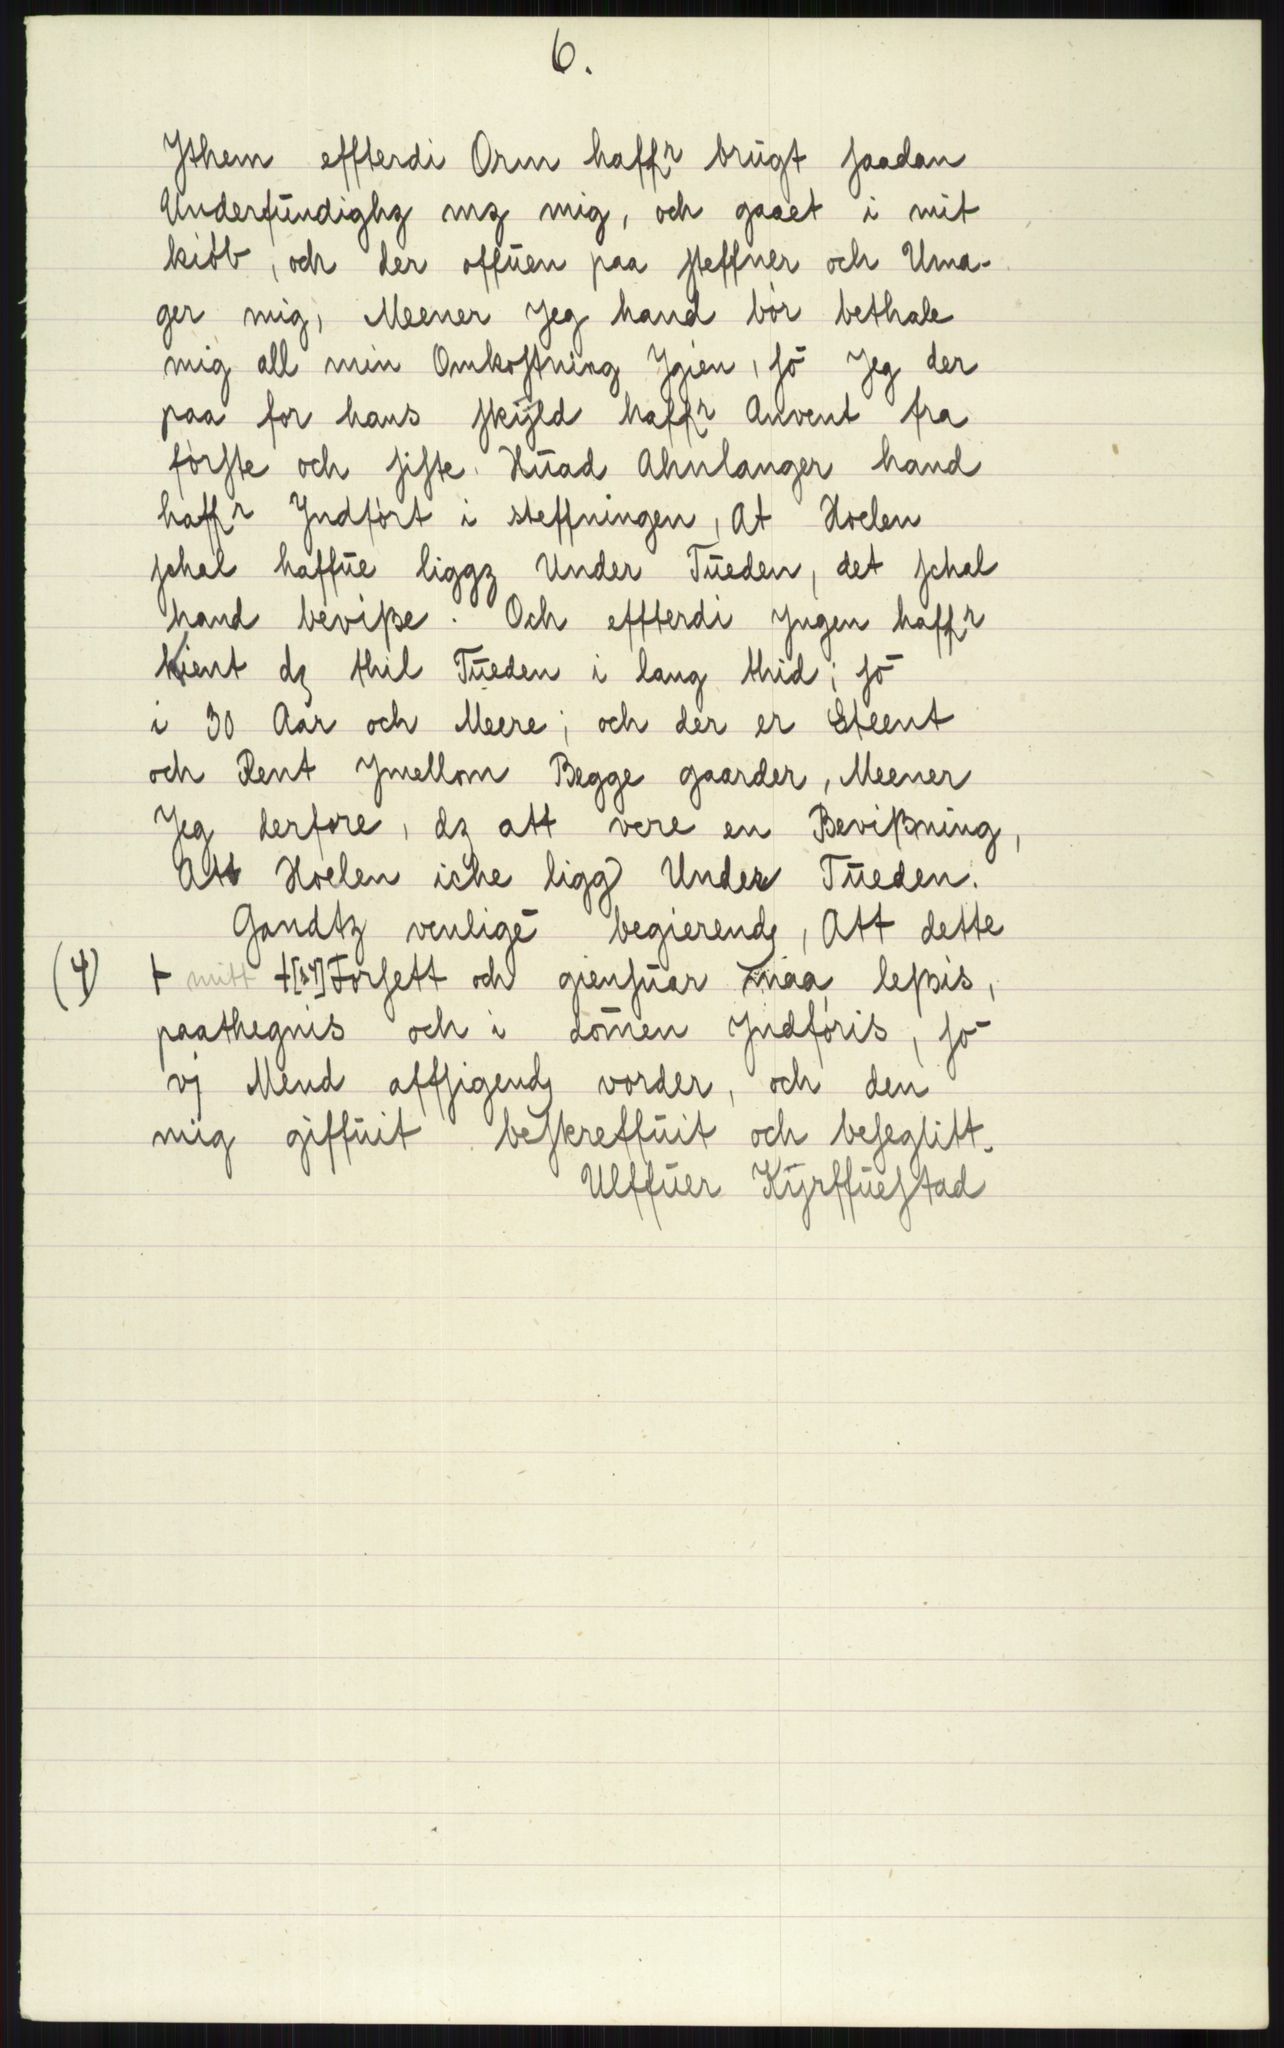 6.
Ythem effterdi Orm haffr brūgt saadan
Underfūndighz mz mig, och gaaet i mit
kiøb, och der offūen paa steffner och Uma-
ger mig, Meener Jeg hand bør bethale
mig all min Omkostning Ygien, sō Jeg der
paa for hans skÿld haffr Anvent fra
første och siste. Hūad Ahnlanger hand
haffr Yndført i steffningen, At Hoelen
schal haffūe liggz Under Tūeden, det schal
hand beviße. Och effterdi Yngen haffr
kient dz thil Tūeden i lang thid; sō
i 30 Aar och Meere; och der er Steent
och Rent Ymellom Begge gaarder, Meener
Jeg derfore, dz att vere en Bevißning,
Att Hoelen iche ligg Under Tūeden.
Gandtz venligē begierend, Att dette
(4) + mitt +[4] Forsett och giensūar maa leßis,
paathegnis och i dōmen Yndføris, sō
vj Mend affsigend vorder, och den
mig giffūit beskreffūit och beseglitt.
Ulffūer Kÿrffūestad